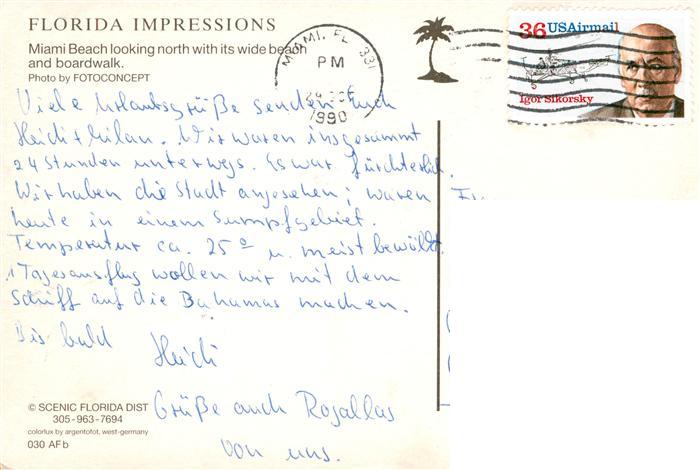 FLORIDA IMPRESSIONS
Miami Beach looking north with its wide beach
and boardwalk.
Photo by FOTOCONCEPT
MIAMI, FL 331
PM
1990
36 USAirmail
Igor Sikorsky
Viele Urlaubsgrüße senden Euch
Heidi + Milan. Wir waren insgesamt
24 Stunden unterwegs. Es war fürchterlich.
Wir haben die Stadt angesehen; waren
heute in einem Sumpfgebiet.
Temperatur ca. 25° u. meist bewölkt.
1 Tagesausflug wollen wir mit dem
Schiff auf die Bahamas machen.
Bis bald Heidi
Grüße auch Rosallas
von uns.
© SCENIC FLORIDA DIST
305-963-7694
colorlux by argentofot, west-germany
030 AFb